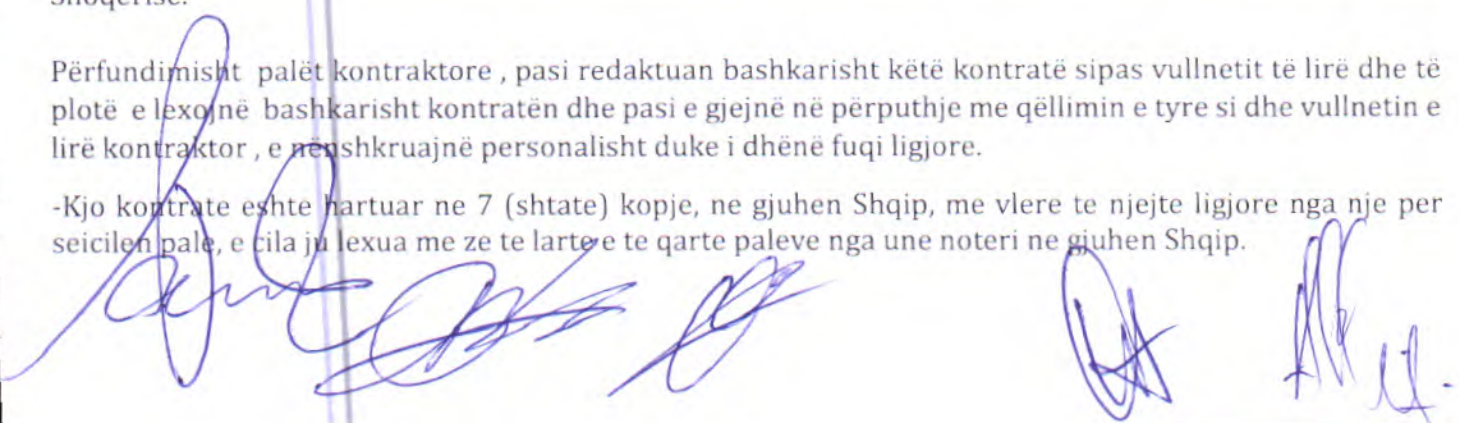 Përfundimisht palët kontraktore , pasi redaktuan bashkarisht këtë kontratë sipas vullnetit të lirë dhe të
plotë e lexojnë bashkarisht kontratën dhe pasi e gjejnë në përputhje me qëllimin e tyre si dhe vullnetin e
lirë kontraktor , e nënshkruajnë personalisht duke i dhënë fuqi ligjore.
-Kjo kontrate eshte hartuar ne 7 (shtate) kopje, ne gjuhen Shqip, me vlere te njejte ligjore nga nje per
seicilen pale, e cila ju lexua me ze te larte e te qarte paleve nga une noteri ne gjuhen Shqip.